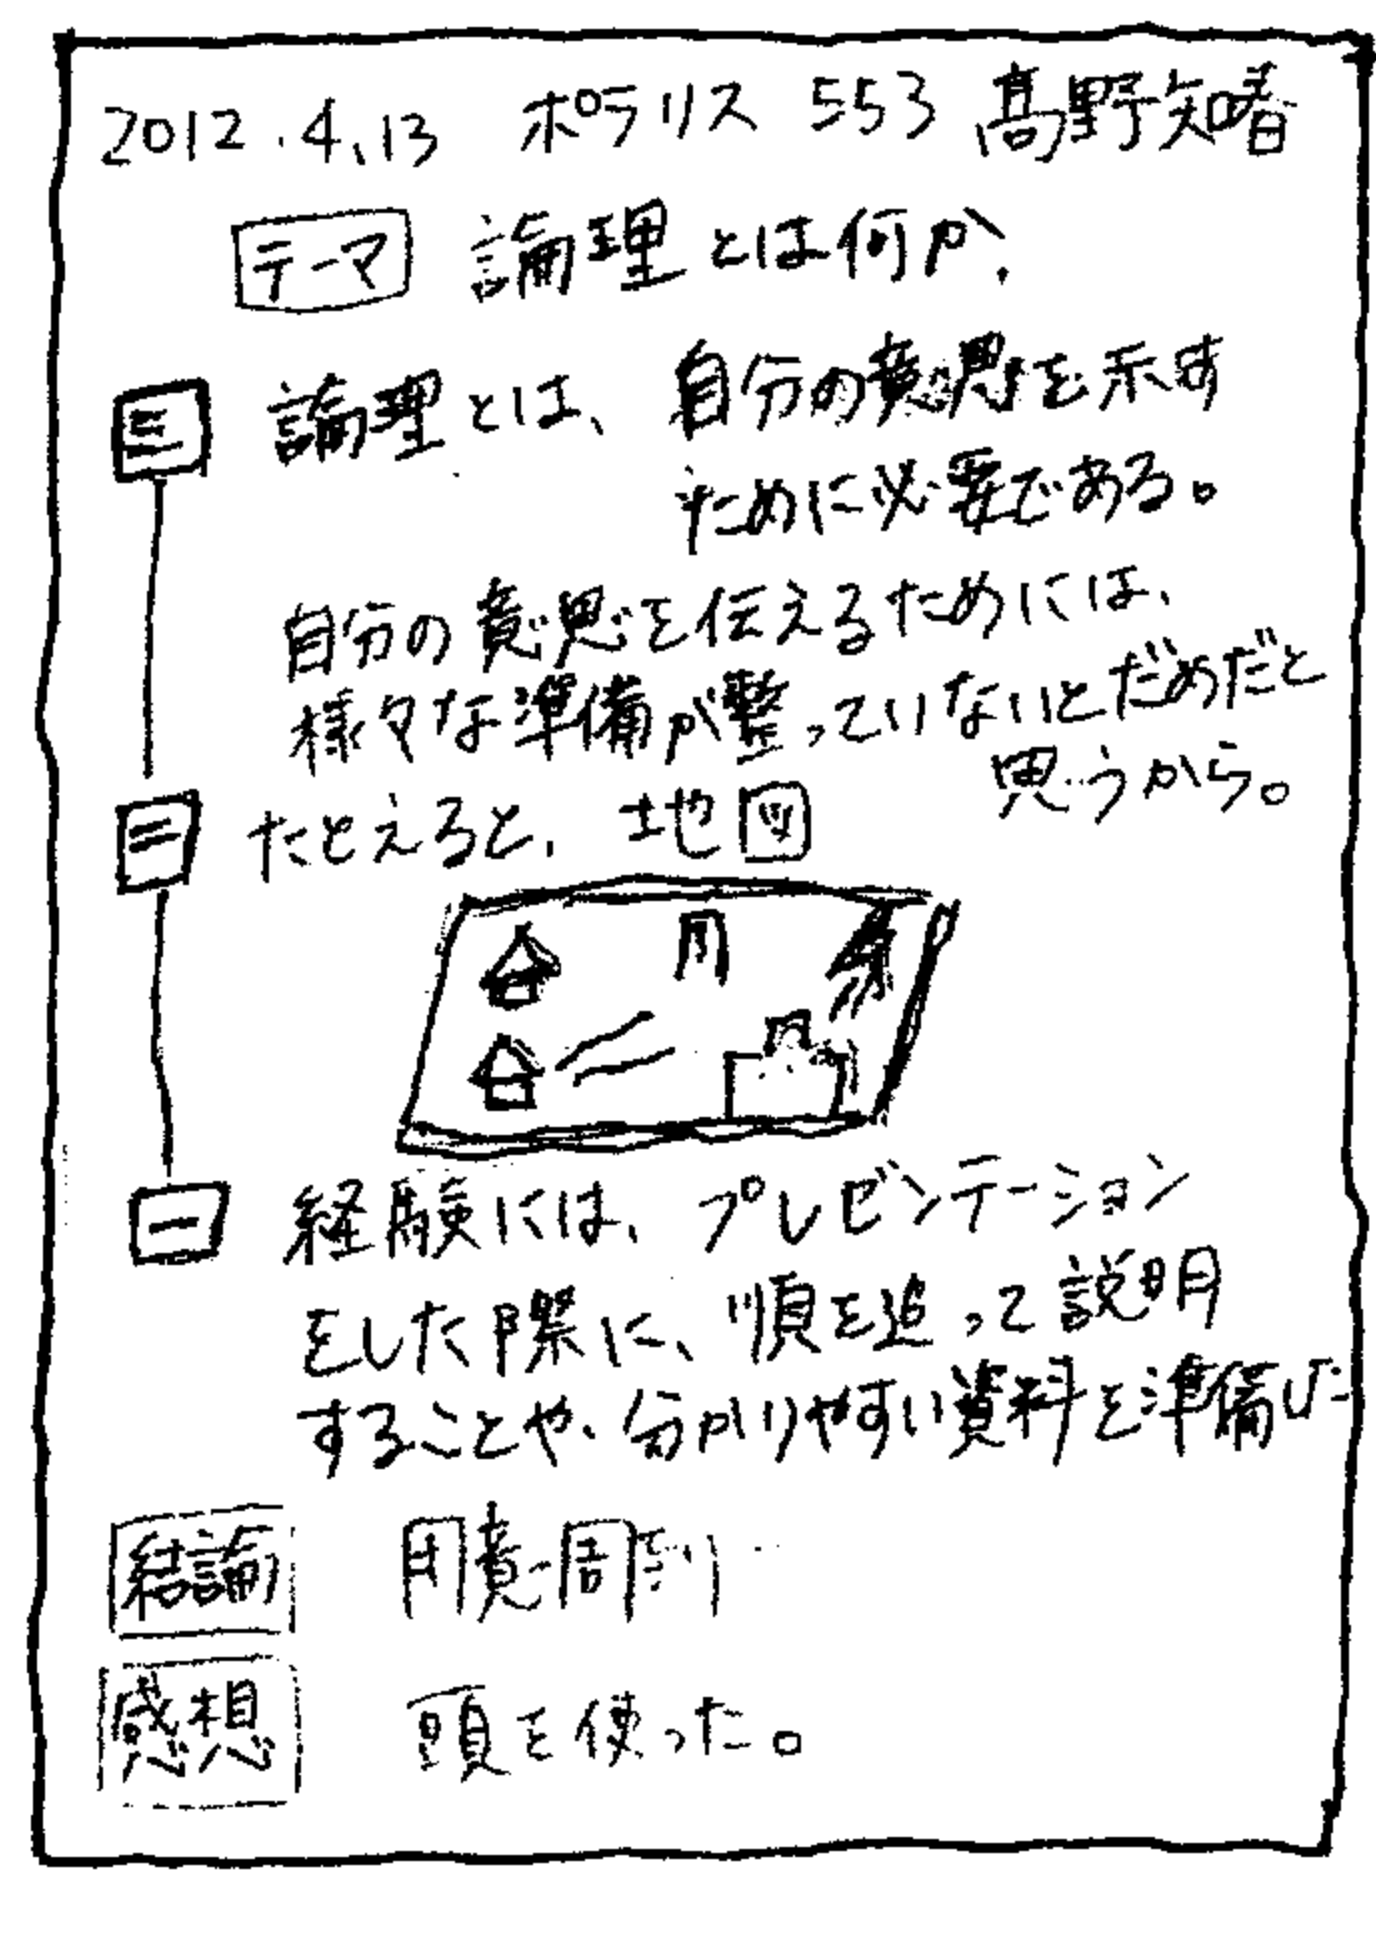 2012.4.13 ポラリス 553 髙野知春
テーマ 論理とは何か、
三 論理とは、自分の意思を示す
ために必要である。
自分の意思を伝えるためには、
様々な準備が整っていないとだめだと
思うから。
二 たとえると、地図
一 経験には、プレゼンテーション
をした際に、順を追って説明
することや、分かりやすい資料を準備した
結論 用意周到
感想 頭を使った。